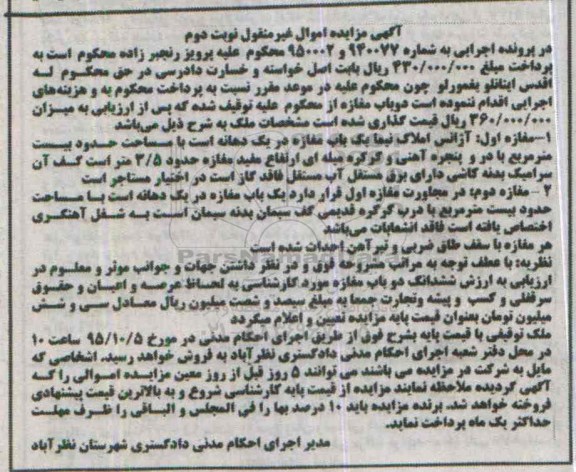 آگهی مزایده اموال غیرمنقول نوبت دوم
در پرونده اجرایی به شماره ۹۴۰۰۷۷ و ۹۵۰۰۰۲ محکوم علیه پرویز رنجبر زاده محکوم است به
پرداخت مبلغ ۴۳۰/۰۰۰/۰۰۰ ریال بابت اصل خواسته و خسارت دادرسی در حق محکوم له
اقدس اینانلو یغمورلو چون محکوم علیه در موعد مقرر نسبت به پرداخت محکوم به و هزینه‌های
اجرایی اقدام ننموده است دوباب مغازه از محکوم علیه توقیف شده که پس از ارزیابی به میزان
۳۶۰/۰۰۰/۰۰۰ ریال قیمت گذاری شده است مشخصات ملک به شرح ذیل می‌باشد
۱-مغازه اول: آژانس املاک نیما یک باب مغازه در یک دهانه است با مساحت حدود بیست
مترمربع با در و پنجره آهنی و کرکره میله ای ارتفاع مفید مغازه حدود ۳/۵ متر است کف آن
سرامیک بدنه کاشی دارای برق مستقل آب مستقل فاقد گاز است در اختیار مستاجر است
۲-مغازه دوم: در مجاورت مغازه اول قرار دارد یک باب مغازه در یک دهانه است با مساحت
حدود بیست مترمربع با درب کرکره قدیمی کف سیمان بدنه سیمان است به شغل آهنگری
اختصاص یافته است فاقد انشعابات می‌باشد
هر مغازه با سقف طاق ضربی و تیرآهن احداث شده است
نظریه: با عطف توجه به مراتب مشروحه فوق و در نظر داشتن جهات و جوانب موثر و معلوم در
ارزیابی به ارزش ششدانگ دو باب مغازه مورد کارشناسی به لحاظ عرصه و اعیان و حقوق
سرقفلی و کسب و پیشه وتجارت جمعا به مبلغ سیصد و شصت میلیون ریال معادل سی و شش
میلیون تومان بعنوان قیمت پایه مزایده تعیین و اعلام میگردد
ملک توقیفی با قیمت پایه بشرح فوق از طریق اجرای احکام مدنی در مورخ ۹۵/۱۰/۵ ساعت ۱۰
در محل دفتر شعبه اجرای احکام مدنی دادگستری نظرآباد به فروش خواهد رسید. اشخاصی که
مایل به شرکت در مزایده می باشند می توانند ۵ روز قبل از روز معین مزایده اموالی را که
آگهی گردیده ملاحظه نمایند مزایده از قیمت پایه کارشناسی شروع و به بالاترین قیمت پیشنهادی
فروخته خواهد شد. برنده مزایده باید ۱۰ درصد بها را فی المجلس و الباقی را ظرف مهلت
حداکثر یک ماه پرداخت نماید.
مدیر اجرای احکام مدنی دادگستری شهرستان نظرآباد